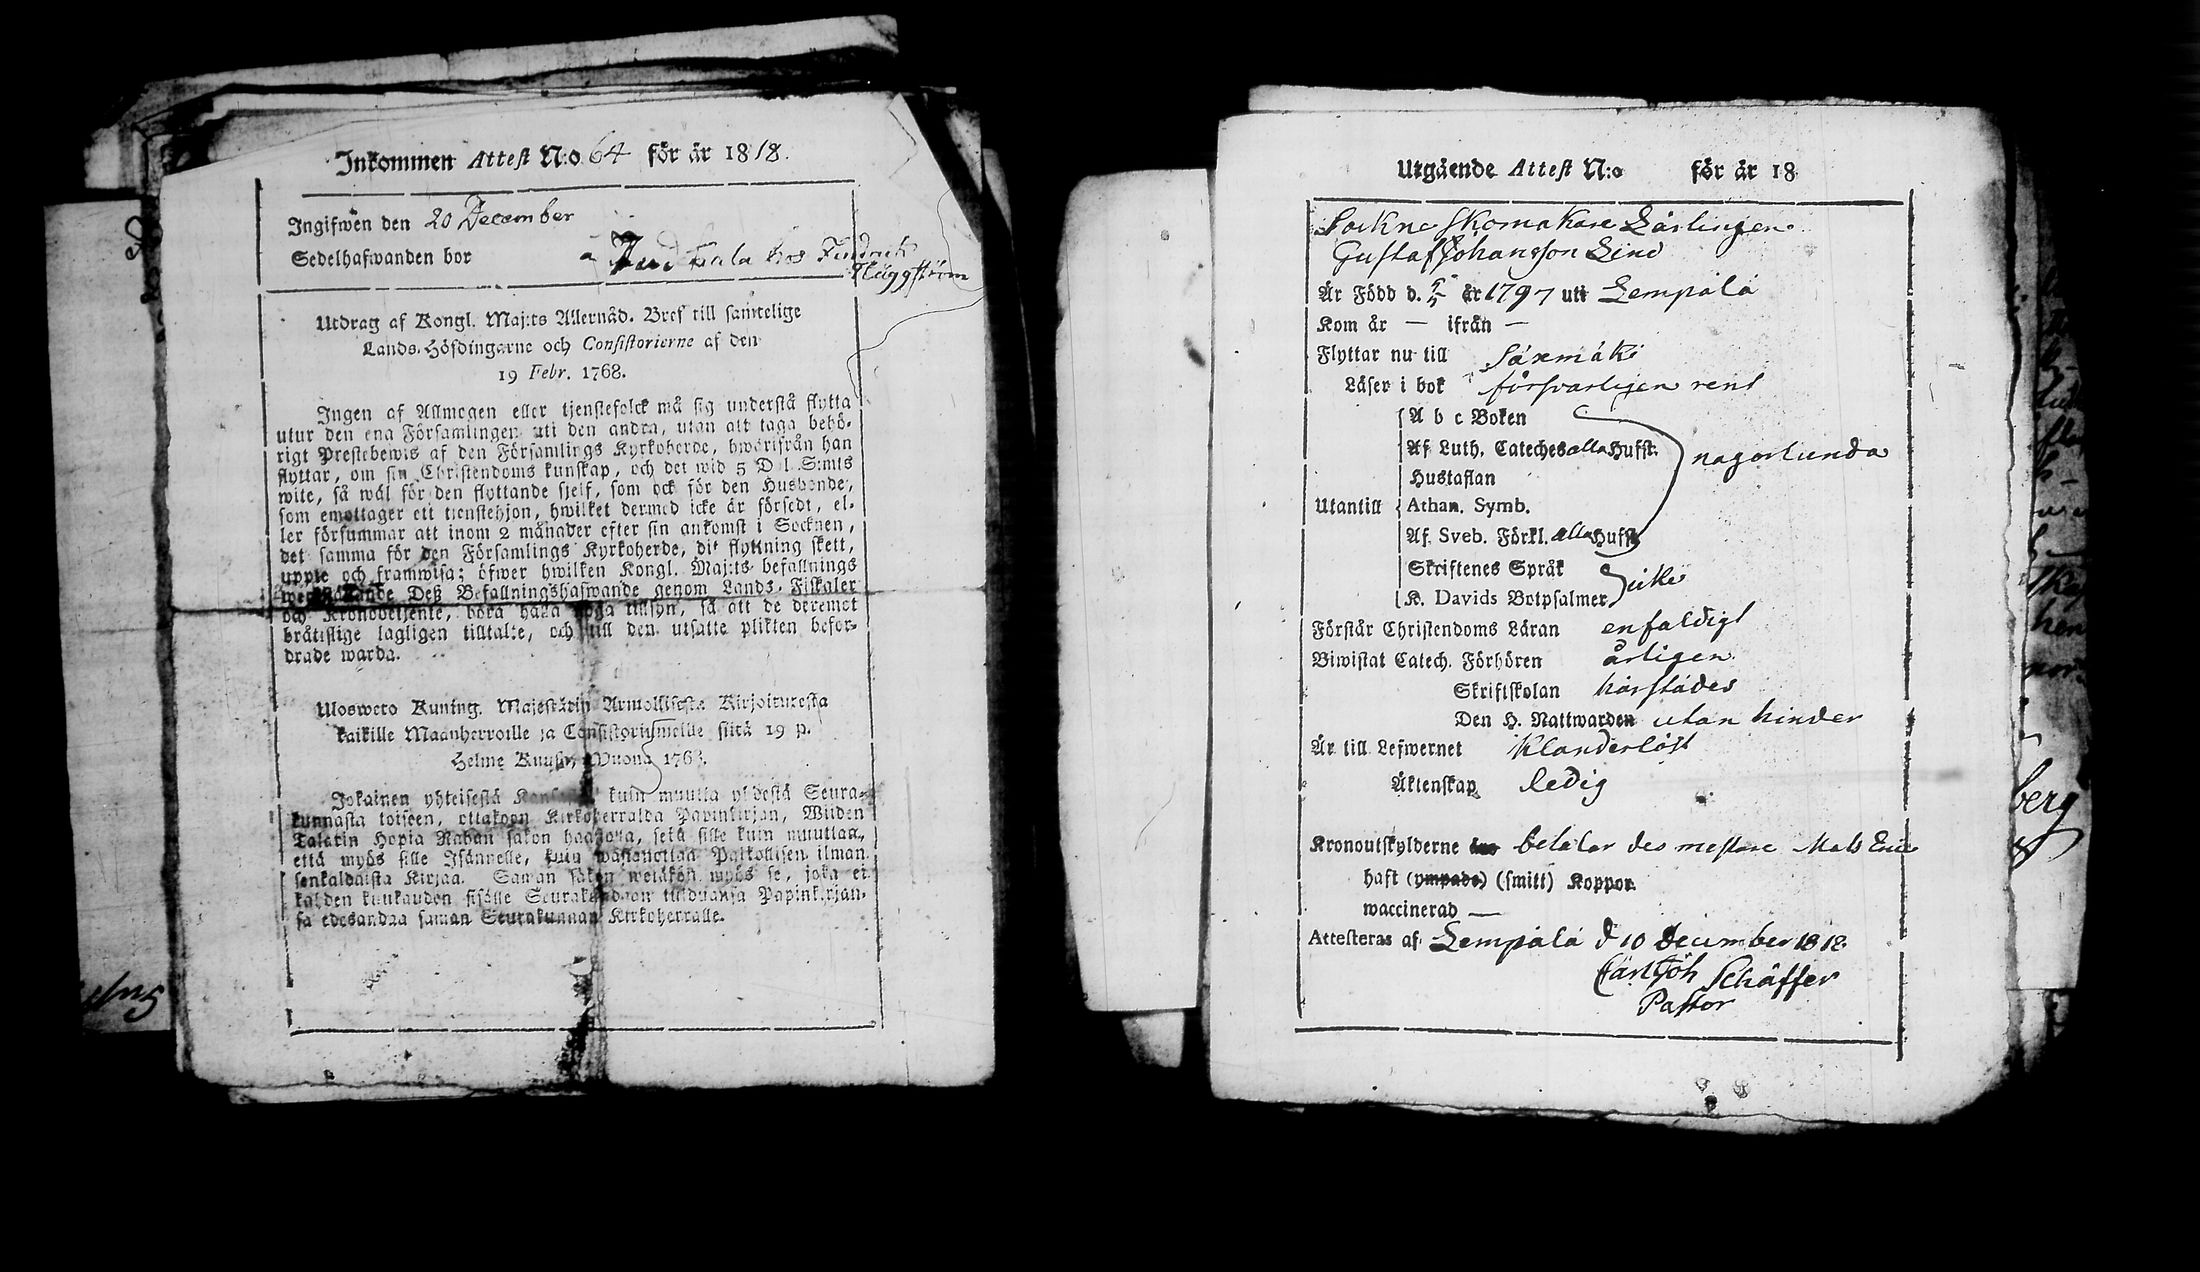 Inkommen Attest N:o 64 för år 1818.
Ingifwen den 20 December
Sedelhafwanden bor å kala hos Fendrick
Häggström
Utdrag af Kongl. Maj:ts Allernåd. Bref till samtelige
Lands-Höfdingarne och Consistorierne af den
19 Febr. 1768.
Ingen af Allmogen eller tjenstefolck må sig understå flytta
utur den ena Församlingen uti den andra, utan att taga behö-
rigt Prestebewis af den Församlings Kyrkoherde, hwarifrån han
flyttar, om sin Christendoms kunskap, och det wid 5 D. S:mts
wite, så wäl för den flyttande sjelf, som ock för den Husbonde,
som emottager ett tienstehjon, hwilket dermed icke är försedt, el-
ler försummar att inom 2 månader efter sin ankomst i Socknen,
det samma för den Församlings Kyrkoherde, dit flyttning skett,
uppte och framwisa; öfwer hwilken Kongl. Maj:ts befallnings
werkställande Deß Befallningshafwande genom Lands-Fiskaler
och Kronobetjente, böra hålla noga tillsyn, så att de deremot
bråttslige lagligen tilltalte, och till den utsatte plikten befor-
drade warda.
Ulosweto Kuning. Majestätin Armollisesta Kirjoituresta
kaikille Maanherroille ja Consistoriumeille siitä 19 p.
Helme Kuusa, Wuona 1768.
Jokainen yhteisestä Kansasta kuin muutta yhdestä Seura-
kunnasta toiseen, ottakoon Kirkoherralda Papinkirjan, Wiiden
Talarin Hopia Rahan sakon haastolla, sekä sille kuin muuttaa,
että myös sille Isännelle, kuin wastanottaa Palkollisen ilman
senkaldaista Kirjaa. Saman sakon wetäköön myös se, joka ei
kahden kuukauden sisälle Seurakundaan tulduansa Papinkirjan-
sa edesandaa saman Seurakunnan Kirkoherralle.
Utgående Attest N:o för år 18
Sockne Skomakare Lärlingen
Gustaf Johansson Lind
Är Född d. 5/5 år 1797 uti Lempälä
Kom år — ifrån —
Flyttar nu till Säxmäki
Läser i bok försvarligen rent
A b c Boken
Af Luth. Cateches alla Hufst. någorlunda
Hustaflan
Utantill Athan. Symb.
Af Sveb. Förkl. alla Hufst
Skriftenes Språk
K. Davids Botpsalmer icke
Förstår Christendoms Läran enfaldigt
Biwistat Catech. Förhören årligen
Skriftskolan härstädes
Den H. Nattwarden utan hinder
Är till Lefwernet Klanderlöst
Äktenskap ledig
Kronoutskylderne betalar des mestare Mats Eric
haft (ympade) (smitt) Koppor.
waccinerad —
Attesteras af Lempälä d 10 December 1818
Carl Joh Schäffer
Pastor
berg